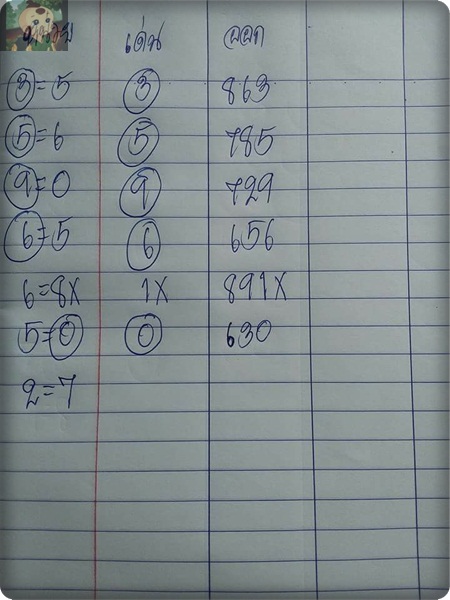 หน่วย เด่น ออก
3=5 3 863
5=6 5 785
9=0 9 729
6=5 6 656
6=8X 1X 891X
5=0 0 630
2=7